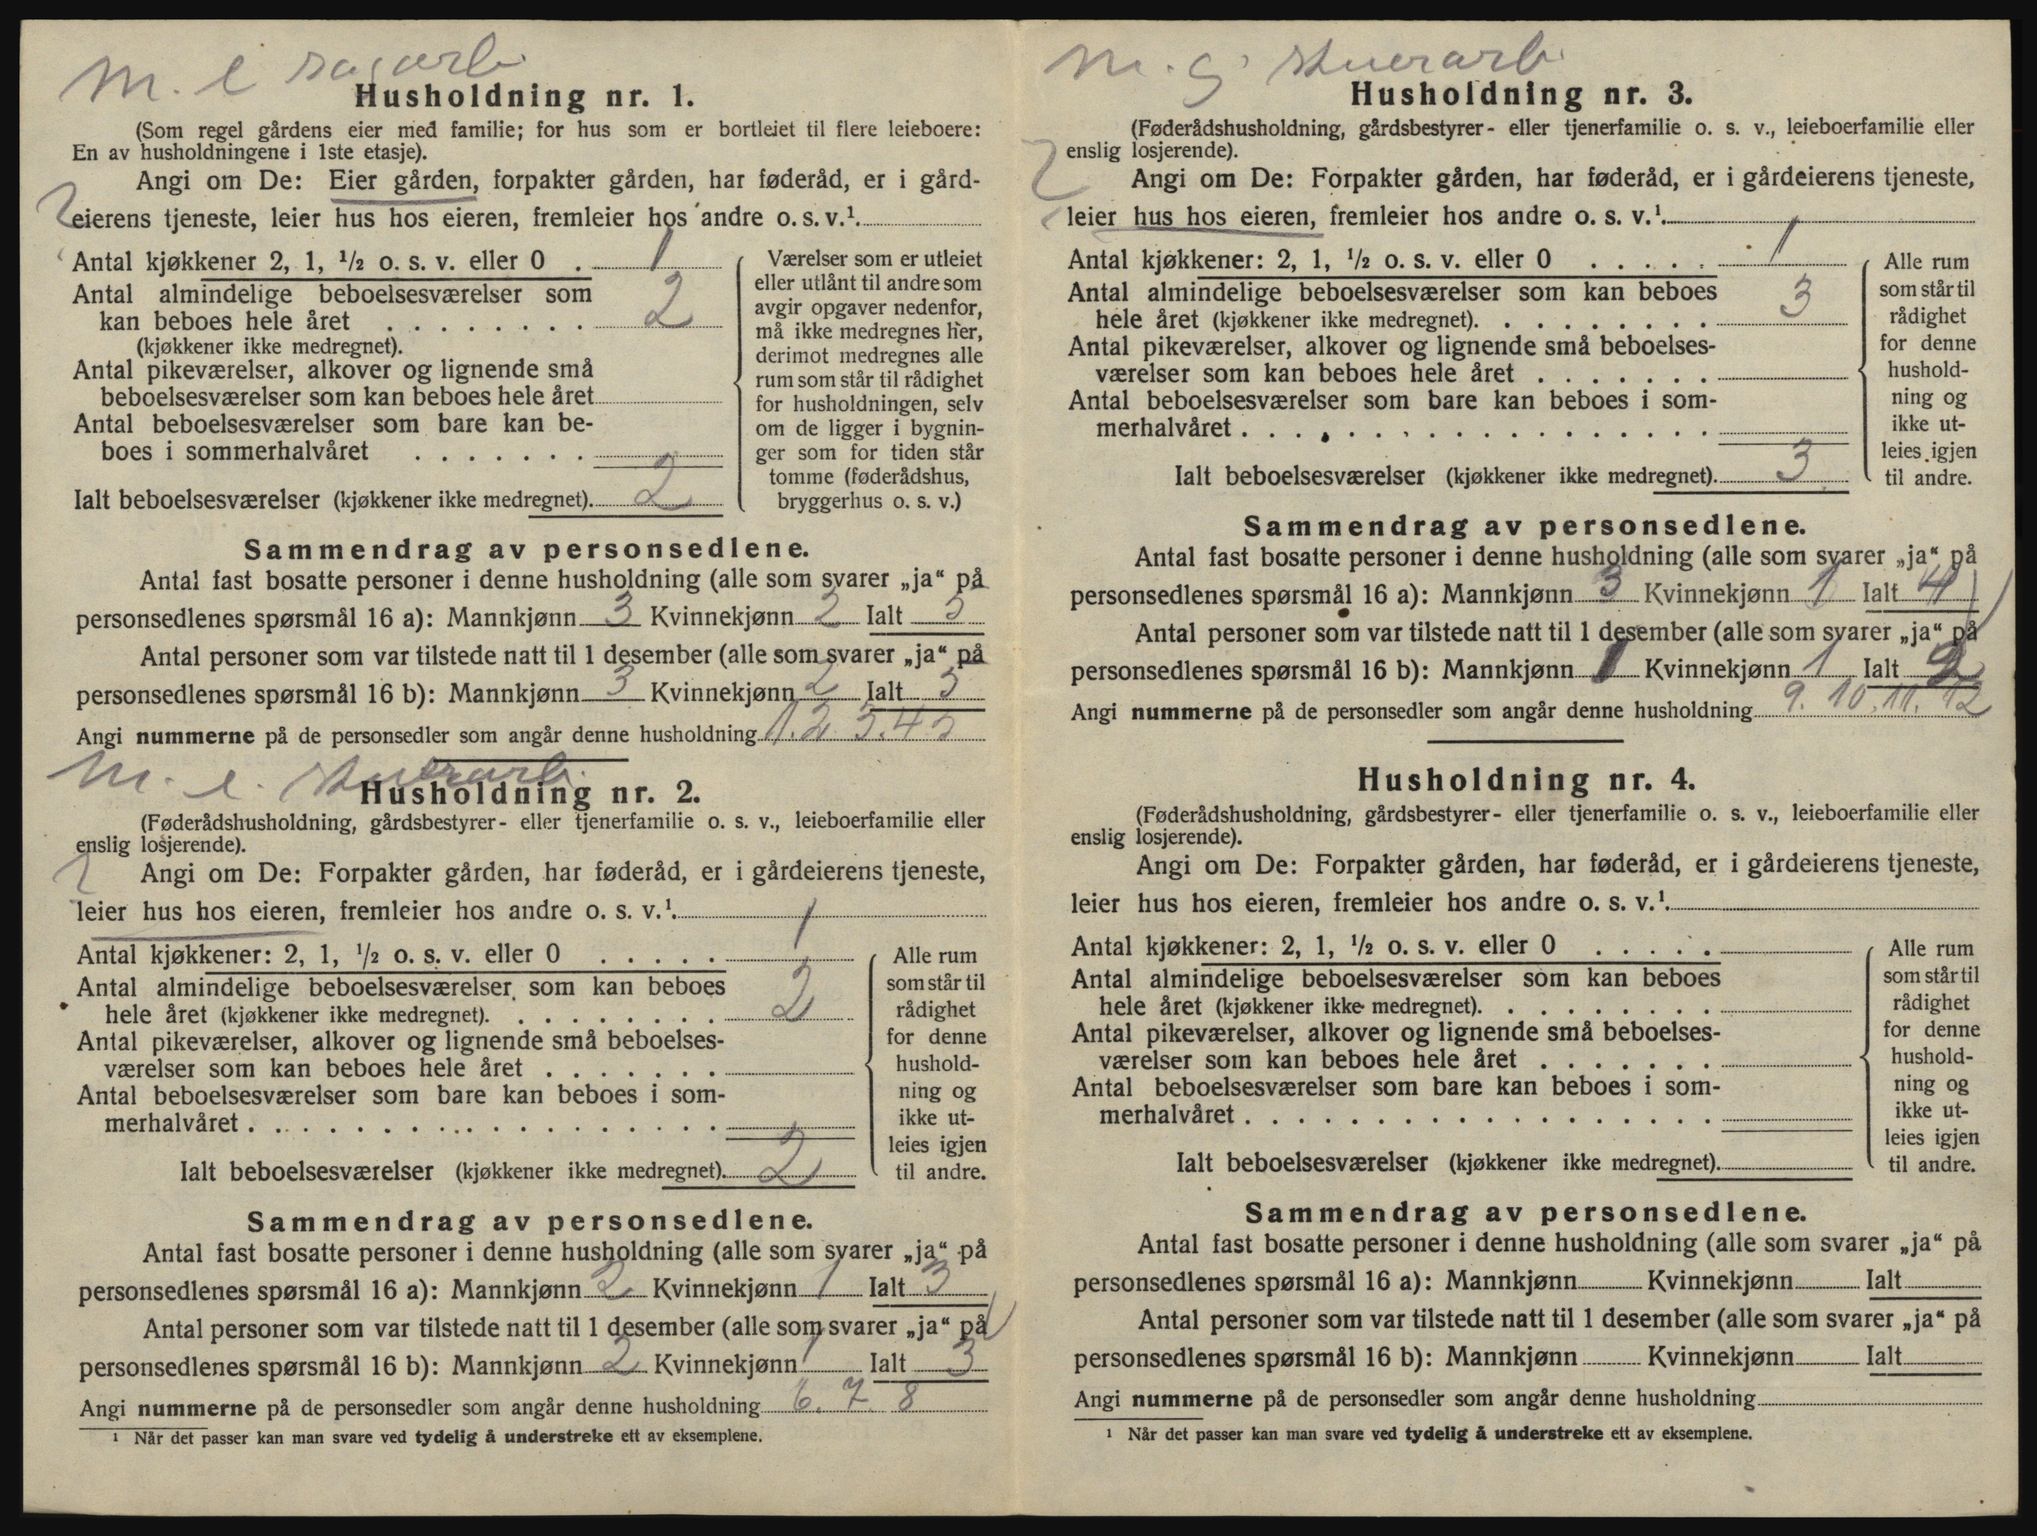 M. e sagarb.
Husholdning nr. 1.
(Som regel gårdens eier med familie; for hus som er bortleiet til flere leieboere:
En av husholdningene i 1ste etasje).
Angi om De: Eier gården, forpakter gården, har føderåd, er i gård-
eierens tjeneste, leier hus hos eieren, fremleier hos andre o. s. v.¹.
Antal kjøkkener 2, 1, ½ o. s. v. eller 0 . 1
Antal almindelige beboelsesværelser som
kan beboes hele året . . . . . . . . 2
(kjøkkener ikke medregnet).
Antal pikeværelser, alkover og lignende små
beboelsesværelser som kan beboes hele året
Antal beboelsesværelser som bare kan be-
boes i sommerhalvåret . . . . . . .
Ialt beboelsesværelser (kjøkkener ikke medregnet). 2
Værelser som er utleiet
eller utlånt til andre som
avgir opgaver nedenfor,
må ikke medregnes her,
derimot medregnes alle
rum som står til rådighet
for husholdningen, selv
om de ligger i bygnin-
ger som for tiden står
tomme (føderådshus,
bryggerhus o. s. v.)
Sammendrag av personsedlene.
Antal fast bosatte personer i denne husholdning (alle som svarer „ja“ på
personsedlenes spørsmål 16 a): Mannkjønn 3 Kvinnekjønn 2 Ialt 5
Antal personer som var tilstede natt til 1 desember (alle som svarer „ja“ på
personsedlenes spørsmål 16 b): Mannkjønn 3 Kvinnekjønn 2 Ialt 5
Angi nummerne på de personsedler som angår denne husholdning 1. 2 3. 4 5
M. e. stuerarb.
Husholdning nr. 2.
(Føderådshusholdning, gårdsbestyrer- eller tjenerfamilie o. s. v., leieboerfamilie eller
enslig losjerende).
Angi om De: Forpakter gården, har føderåd, er i gårdeierens tjeneste,
leier hus hos eieren, fremleier hos andre o. s. v.¹.
Antal kjøkkener: 2, 1, ½ o. s. v. eller 0 . . . . . 1
Antal almindelige beboelsesværelser som kan beboes
hele året (kjøkkener ikke medregnet). . . . . . . . . 2
Antal pikeværelser, alkover og lignende små beboelses-
værelser som kan beboes hele året . . . . . . .
Antal beboelsesværelser som bare kan beboes i som-
merhalvåret . . . . . . . . . . . . . . . . . .
Ialt beboelsesværelser (kjøkkener ikke medregnet). 2
Alle rum
som står til
rådighet
for denne
hushold-
ning og
ikke ut-
leies igjen
til andre.
Sammendrag av personsedlene.
Antal fast bosatte personer i denne husholdning (alle som svarer „ja“ på
personsedlenes spørsmål 16 a): Mannkjønn 2 Kvinnekjønn 1 Ialt 3
Antal personer som var tilstede natt til 1 desember (alle som svarer „ja“ på
personsedlenes spørsmål 16 b): Mannkjønn 2 Kvinnekjønn 1 Ialt 3
Angi nummerne på de personsedler som angår denne husholdning 6. 7. 8
¹ Når det passer kan man svare ved tydelig å understreke ett av eksemplene.
M. G stuerarb.
Husholdning nr. 3.
(Føderådshusholdning, gårdsbestyrer- eller tjenerfamilie o. s. v., leieboerfamilie eller
enslig losjerende).
Angi om De: Forpakter gården, har føderåd, er i gårdeierens tjeneste,
leier hus hos eieren, fremleier hos andre o. s. v.¹.
Antal kjøkkener: 2, 1, ½ o. s. v. eller 0 . . . . . 1
Antal almindelige beboelsesværelser som kan beboes
hele året (kjøkkener ikke medregnet). . . . . . . . . 3
Antal pikeværelser, alkover og lignende små beboelses-
værelser som kan beboes hele året . . . . . . .
Antal beboelsesværelser som bare kan beboes i som-
merhalvåret . . . . . . . . . . . . . . . . . .
Ialt beboelsesværelser (kjøkkener ikke medregnet). 3
Alle rum
som står til
rådighet
for denne
hushold-
ning og
ikke ut-
leies igjen
til andre.
Sammendrag av personsedlene.
Antal fast bosatte personer i denne husholdning (alle som svarer „ja“ på
personsedlenes spørsmål 16 a): Mannkjønn 3 Kvinnekjønn 1 Ialt 4
Antal personer som var tilstede natt til 1 desember (alle som svarer „ja“ på
personsedlenes spørsmål 16 b): Mannkjønn 1 Kvinnekjønn 1 Ialt 2
Angi nummerne på de personsedler som angår denne husholdning 9. 10. 11. 12
Husholdning nr. 4.
(Føderådshusholdning, gårdsbestyrer- eller tjenerfamilie o. s. v., leieboerfamilie eller
enslig losjerende).
Angi om De: Forpakter gården, har føderåd, er i gårdeierens tjeneste,
leier hus hos eieren, fremleier hos andre o. s. v.¹.
Antal kjøkkener: 2, 1, ½ o. s. v. eller 0 . . . . .
Antal almindelige beboelsesværelser som kan beboes
hele året (kjøkkener ikke medregnet). . . . . . . . .
Antal pikeværelser, alkover og lignende små beboelses-
værelser som kan beboes hele året . . . . . . .
Antal beboelsesværelser som bare kan beboes i som-
merhalvåret . . . . . . . . . . . . . . . . . .
Ialt beboelsesværelser (kjøkkener ikke medregnet).
Alle rum
som står til
rådighet
for denne
hushold-
ning og
ikke ut-
leies igjen
til andre.
Sammendrag av personsedlene.
Antal fast bosatte personer i denne husholdning (alle som svarer „ja“ på
personsedlenes spørsmål 16 a): Mannkjønn Kvinnekjønn Ialt
Antal personer som var tilstede natt til 1 desember (alle som svarer „ja“ på
personsedlenes spørsmål 16 b): Mannkjønn Kvinnekjønn Ialt
Angi nummerne på de personsedler som angår denne husholdning
¹ Når det passer kan man svare ved tydelig å understreke ett av eksemplene.